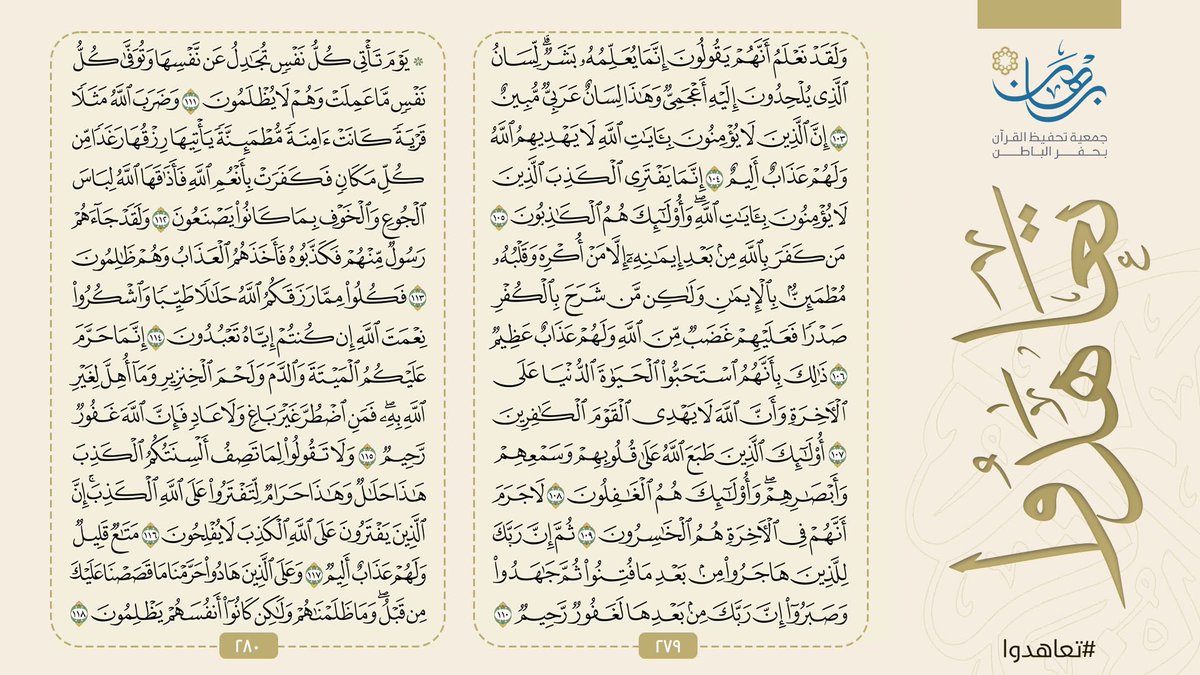 برهان
جمعية تحفيظ القرآن
بحفر الباطن
تعاهدوا
#تعاهدوا
وَلَقَدْ نَعْلَمُ أَنَّهُمْ يَقُولُونَ إِنَّمَا يُعَلِّمُهُۥ بَشَرٌۗ لِّسَانُ
ٱلَّذِى يُلْحِدُونَ إِلَيْهِ أَعْجَمِىٌّ وَهَٰذَا لِسَانٌ عَرَبِىٌّ مُّبِينٌ
١٠٣ إِنَّ ٱلَّذِينَ لَا يُؤْمِنُونَ بِـَٔايَٰتِ ٱللَّهِ لَا يَهْدِيهِمُ ٱللَّهُ
وَلَهُمْ عَذَابٌ أَلِيمٌ ١٠٤ إِنَّمَا يَفْتَرِى ٱلْكَذِبَ ٱلَّذِينَ
لَا يُؤْمِنُونَ بِـَٔايَٰتِ ٱللَّهِۖ وَأُو۟لَٰٓئِكَ هُمُ ٱلْكَٰذِبُونَ ١٠٥
مَن كَفَرَ بِٱللَّهِ مِنۢ بَعْدِ إِيمَٰنِهِۦٓ إِلَّا مَنْ أُكْرِهَ وَقَلْبُهُۥ
مُطْمَئِنٌّۢ بِٱلْإِيمَٰنِ وَلَٰكِن مَّن شَرَحَ بِٱلْكُفْرِ
صَدْرًا فَعَلَيْهِمْ غَضَبٌ مِّنَ ٱللَّهِ وَلَهُمْ عَذَابٌ عَظِيمٌ
١٠٦ ذَٰلِكَ بِأَنَّهُمُ ٱسْتَحَبُّوا۟ ٱلْحَيَوٰةَ ٱلدُّنْيَا عَلَى
ٱلْءَاخِرَةِ وَأَنَّ ٱللَّهَ لَا يَهْدِى ٱلْقَوْمَ ٱلْكَٰفِرِينَ
١٠٧ أُو۟لَٰٓئِكَ ٱلَّذِينَ طَبَعَ ٱللَّهُ عَلَىٰ قُلُوبِهِمْ وَسَمْعِهِمْ
وَأَبْصَٰرِهِمْۖ وَأُو۟لَٰٓئِكَ هُمُ ٱلْغَٰفِلُونَ ١٠٨ لَا جَرَمَ
أَنَّهُمْ فِى ٱلْءَاخِرَةِ هُمُ ٱلْخَٰسِرُونَ ١٠٩ ثُمَّ إِنَّ رَبَّكَ
لِلَّذِينَ هَاجَرُوا۟ مِنۢ بَعْدِ مَا فُتِنُوا۟ ثُمَّ جَٰهَدُوا۟
وَصَبَرُوٓا۟ إِنَّ رَبَّكَ مِنۢ بَعْدِهَا لَغَفُورٌ رَّحِيمٌ ١١٠
٢٧٩
۞ يَوْمَ تَأْتِى كُلُّ نَفْسٍ تُجَٰدِلُ عَن نَّفْسِهَا وَتُوَفَّىٰ كُلُّ
نَفْسٍ مَّا عَمِلَتْ وَهُمْ لَا يُظْلَمُونَ ١١١ وَضَرَبَ ٱللَّهُ مَثَلًا
قَرْيَةً كَانَتْ ءَامِنَةً مُّطْمَئِنَّةً يَأْتِيهَا رِزْقُهَا رَغَدًا مِّن
كُلِّ مَكَانٍ فَكَفَرَتْ بِأَنْعُمِ ٱللَّهِ فَأَذَٰقَهَا ٱللَّهُ لِبَاسَ
ٱلْجُوعِ وَٱلْخَوْفِ بِمَا كَانُوا۟ يَصْنَعُونَ ١١٢ وَلَقَدْ جَآءَهُمْ
رَسُولٌ مِّنْهُمْ فَكَذَّبُوهُ فَأَخَذَهُمُ ٱلْعَذَابُ وَهُمْ ظَٰلِمُونَ
١١٣ فَكُلُوا۟ مِمَّا رَزَقَكُمُ ٱللَّهُ حَلَٰلًا طَيِّبًا وَٱشْكُرُوا۟
نِعْمَتَ ٱللَّهِ إِن كُنتُمْ إِيَّاهُ تَعْبُدُونَ ١١٤ إِنَّمَا حَرَّمَ
عَلَيْكُمُ ٱلْمَيْتَةَ وَٱلدَّمَ وَلَحْمَ ٱلْخِنزِيرِ وَمَآ أُهِلَّ لِغَيْرِ
ٱللَّهِ بِهِۦۖ فَمَنِ ٱضْطُرَّ غَيْرَ بَاغٍ وَلَا عَادٍ فَإِنَّ ٱللَّهَ غَفُورٌ
رَّحِيمٌ ١١٥ وَلَا تَقُولُوا۟ لِمَا تَصِفُ أَلْسِنَتُكُمُ ٱلْكَذِبَ
هَٰذَا حَلَٰلٌ وَهَٰذَا حَرَامٌ لِّتَفْتَرُوا۟ عَلَى ٱللَّهِ ٱلْكَذِبَۚ إِنَّ
ٱلَّذِينَ يَفْتَرُونَ عَلَى ٱللَّهِ ٱلْكَذِبَ لَا يُفْلِحُونَ ١١٦ مَتَٰعٌ قَلِيلٌ
وَلَهُمْ عَذَابٌ أَلِيمٌ ١١٧ وَعَلَى ٱلَّذِينَ هَادُوا۟ حَرَّمْنَا مَا قَصَصْنَا عَلَيْكَ
مِن قَبْلُۖ وَمَا ظَلَمْنَٰهُمْ وَلَٰكِن كَانُوٓا۟ أَنفُسَهُمْ يَظْلِمُونَ ١١٨
٢٨٠